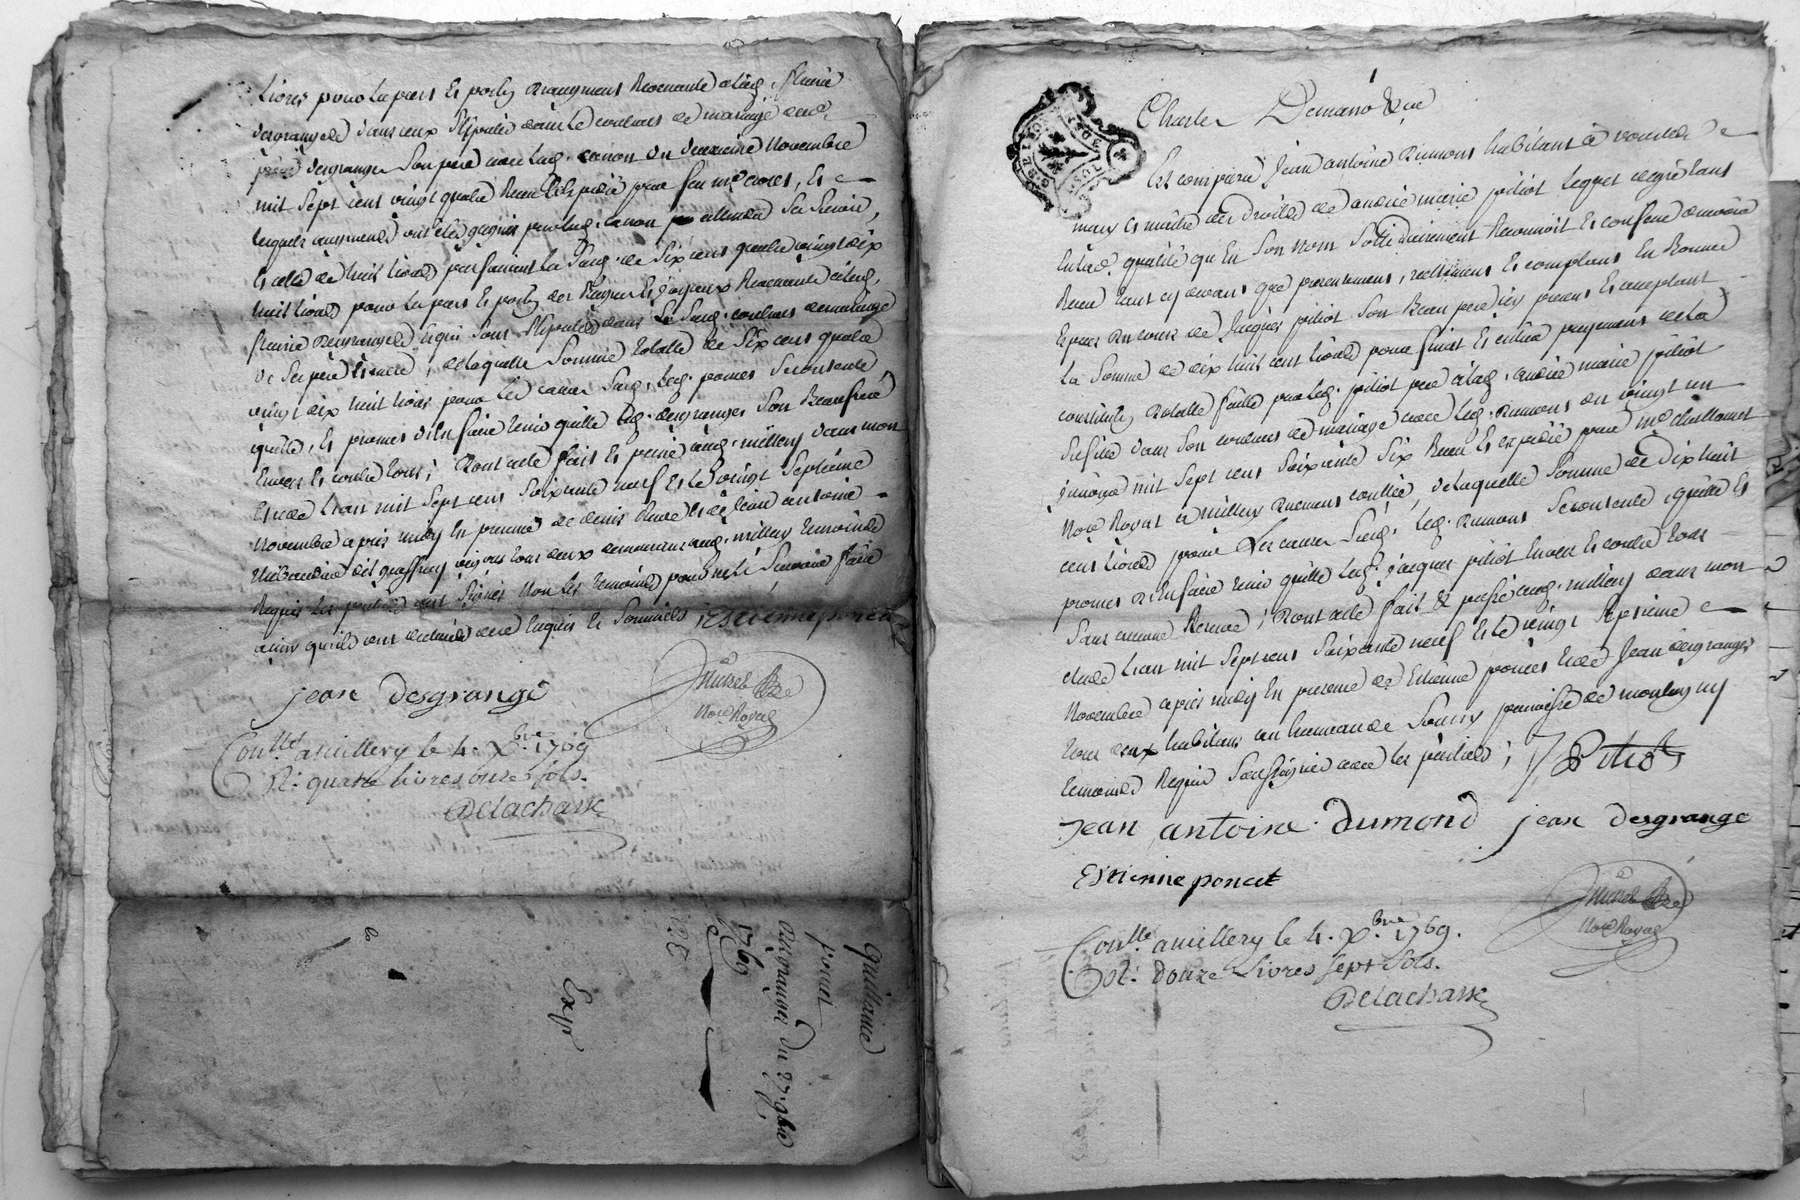 livres pour la part et portion d'augment revenante à lad. fleurie
desgranges dans ceux stipulés dans le contract de mariage
desgranges son père avec lad. canon du deuxieme Novembre
mil sept cent vingt quatre Receu et expedié pour feu me
lesquels augments ont été gagnés par lad. canon
et celle de huit livres parfaisant la susd. de six cent quatre vingt dix
huit livres pour la part et portion des Bagues et joyaux Revenante à lad.
fleurie desgranges et qui sont stipulés dans le susd. contract de mariage
de ses père et mere ; de laquelle somme totalle de six cent quatre
vingt dix huit livres pour les causes susd. led. poncet se contente
quitte, et promet d'en faire tenir quitte led. desgranges son Beaufrere
Envers et contre tous ; dont acte fait et passé aud. millery dans mon
Etude l'an mil sept cent soixante neuf et le vingt septieme
Novembre apres midy en presence de denis et de Jean antoine
tous deux demeurant aud. millery temoins
Requis les parties ont signés non les temoins pour ne le savoir faire
ainsi qu'ils ont declarés de ce enquis et sommés ; Estienne poncet
jean desgrange
Not. Royal
Contlle. a millery le 4. Xbre 1769
R: quatre livres onze sols.
Delachasse
Quittance
poncet
Desgranges du 27. 9bre
1769
Exp.
Charles Demano
Est comparu Jean antoine Dumont habitant à vourles
mary et maitre des droits de andrée marie pitiot lequel de gré tant
en lad. qualité qu'en son nom Sollidairement Reconnoit et confesse avoir
Receu tant cy devant que presentement, reellement et comptant en Bonnes
Especes au cours de Jacques pitiot son Beau pere icy present et acceptant
la somme de dix huit cent livres pour final et entier payement de la
constitution totalle faitte par led. pitiot pere à lad. andrée marie pitiot
sa fille dans son contract de mariage avec led. Dumont du vingt un
janvier mil sept cent soixante six Receu et expedié par me
Nore Royal a millery duement contllé, de laquelle somme de dix huit
cent livres pour les causes susd. led. Dumont se contente quitte et
promet d'en faire tenir quitte led. jacques pitiot Envers et contre tous
sans aucune Reserve ; dont acte fait et passé aud. millery dans mon
etude l'an mil sept cent soixante neuf et le vingt septieme
Novembre apres midy en presence de Etienne poncet et de Jean desgranges
tous deux habitans au hameau de Sourzy paroisse de montagny
temoins Requis soussignés avec les parties ; J Pitiot
jean antoine dumond jean desgrange
Estienne poncet
Not. Royal
Contlle. a millery le 4. Xbre 1769.
R: douze livres sept sols.
Delachasse